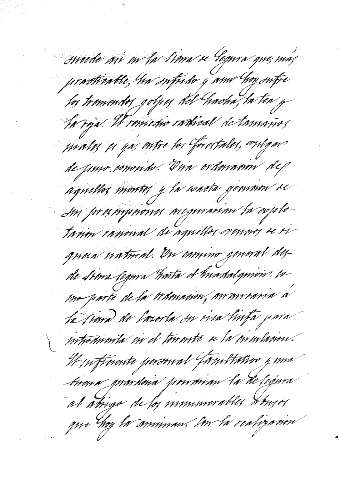 sucede así en la Sierra de Segura que, más
practicable, ha sufrido y aun hoy sufre
los tremendos golpes del hacha, la tea y
la reja. El remedio radical de tamaños
males es ya, entre los forestales, vulgar
de puro conocido. Una ordenación de
aquellos montes y la exacta gestión de
sus prescripciones asegurarían la explo-
tación racional de aquellos veneros de ri-
queza natural. Un camino general des-
de Siles Segura hasta el Guadalquivir, co-
mo parte de la ordenación, arrancaría á
la Sierra de Cazorla su rica linfa para
introducirla en el torrente de la circulación.
El suficiente personal facultativo y una
buena guardería pondrían la de Segura
al abrigo de los innumerables abusos
que hoy la arruinan. Con la realización